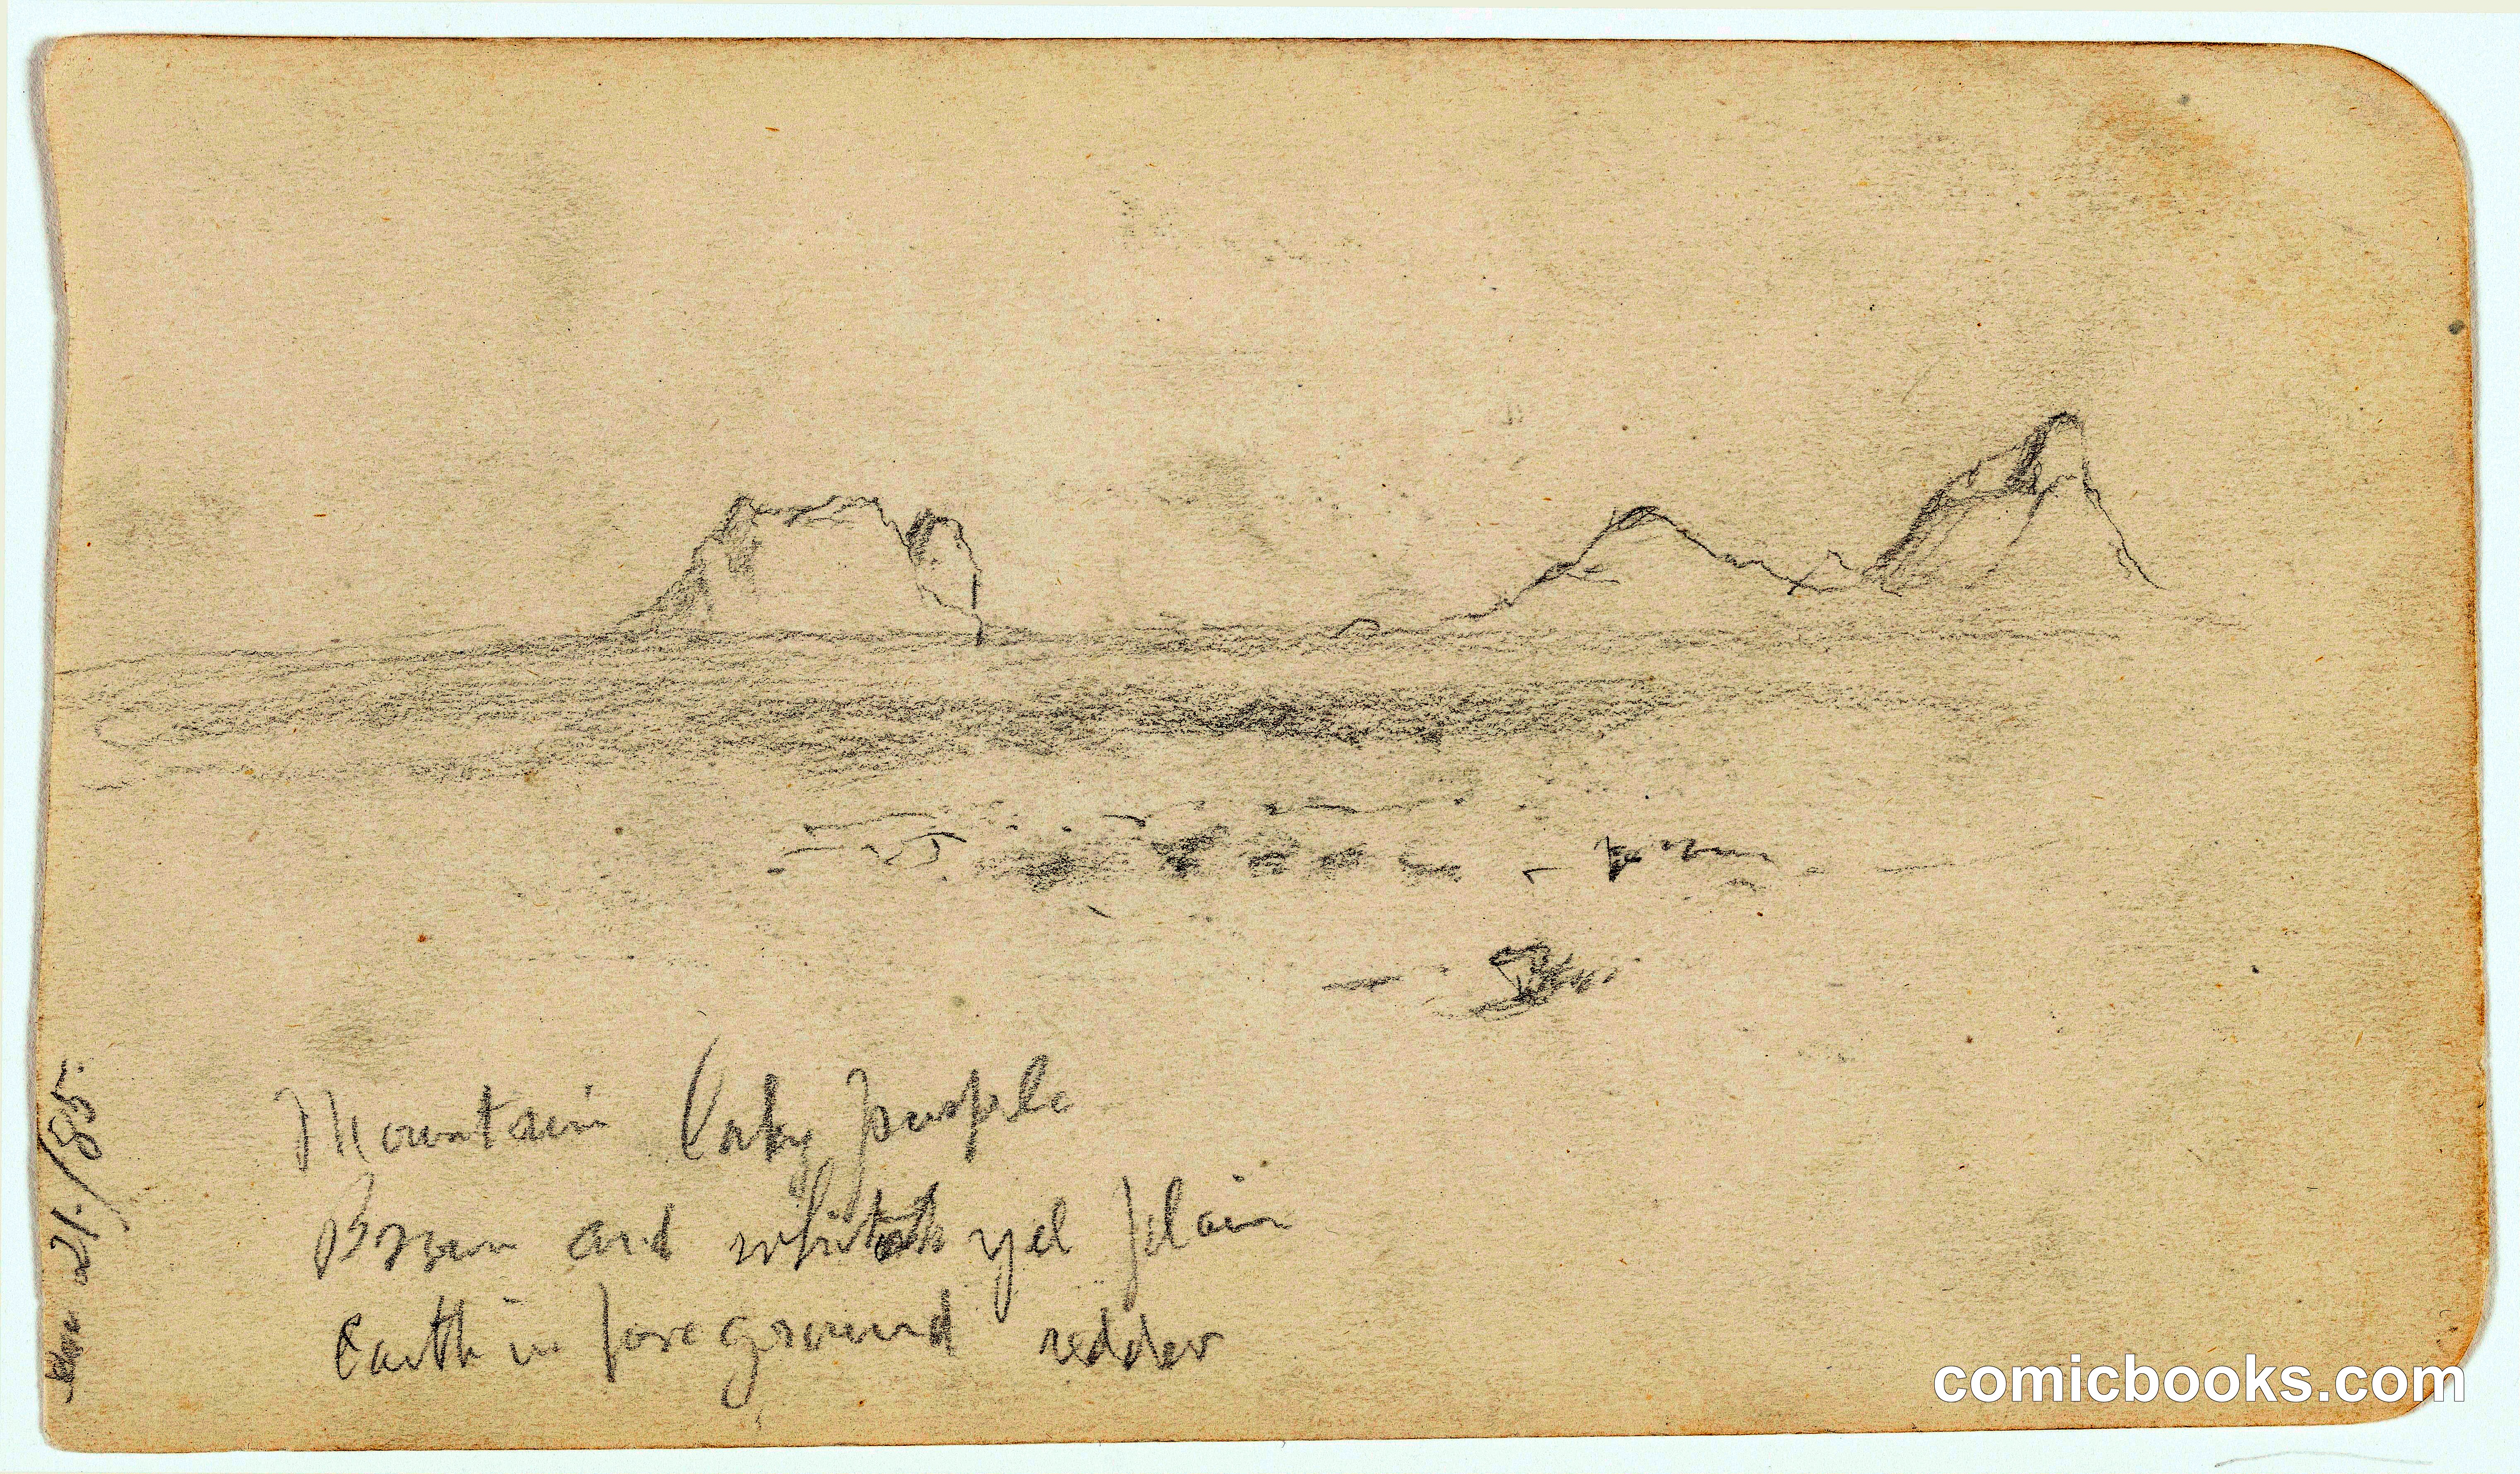 Mountain purple
Brown and whitish yel plain
Earth in foreground redder
21/85
comicbooks.com